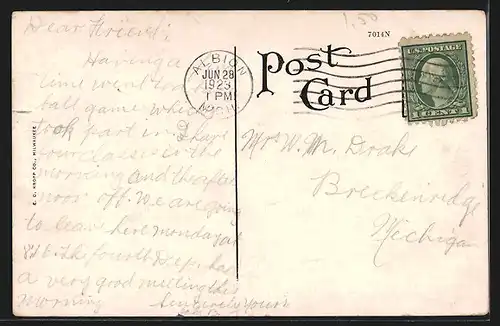 1.50
7014N
Dear Friend:
Having a
time went to a
ball game which
took part in. have
four classes in the
morning and the after
noon off. We are going
to leave here monday at
The fourth has
a very good meeting this
morning
Sincerely Yours
ALBION
JUN 28
1923
1 PM
MICH
Post
Card
U.S. POSTAGE
1 CENT 1
Mr. W. M. Drake
Breckenridge
Michigan
E. C. KROPP CO., MILWAUKEE